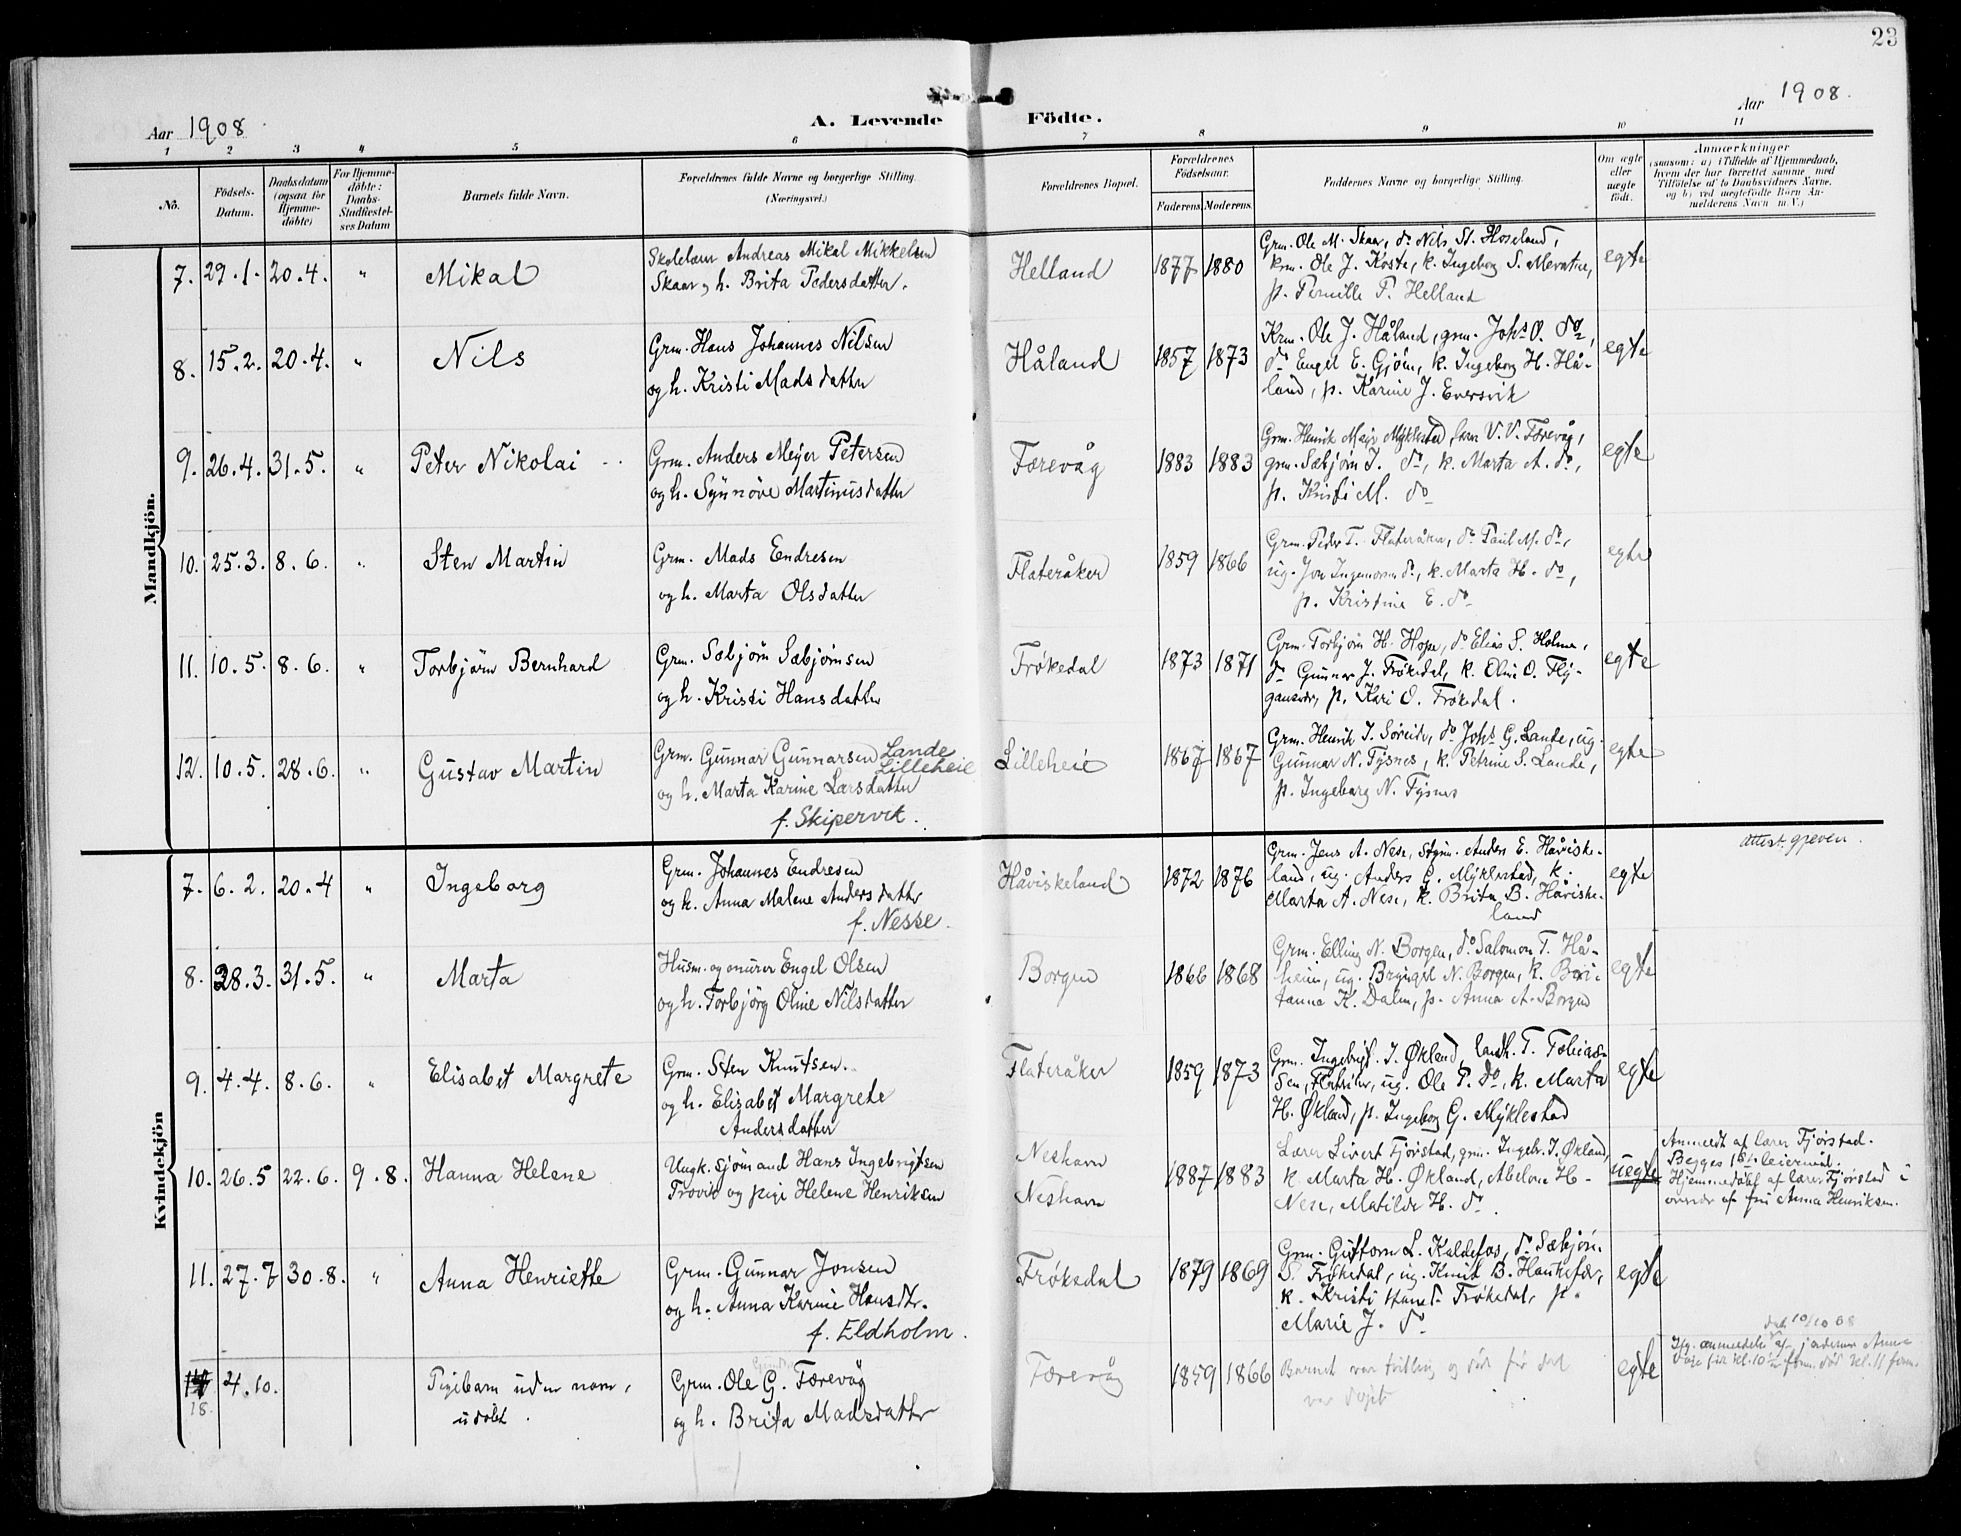 23
Aar 1908.
A. Levende Födte.
Aar 1908.
1 2 3 4 5 6 7 8 9 10 11
No.
Födsels-Datum.
Daabsdatum (ogsaa for Hjemmedöbte)
For Hjemmedöbte: Daabs-Stadfæstelses Datum
Barnets fulde Navn.
Forældrenes fulde Navne og borgerlige Stilling.
(Næringsvei.)
Forældrenes Bopæl.
Forældrenes Födselsaar.
Faderens. Moderens.
Faddernes Navne og borgerlige Stilling.
Om ægte eller uægte födt.
Anmærkninger
(saasom: a) i Tilfælde af Hjemmedaab,
hvem der har forrettet samme med
Tilföielse af to Daabsvidners Navne.
og b) ved uægtefödte Börn Anmelderens Navn m. V.)
Mandkjön.
7. 29.1. 20.4. " Mikal
Skolelærer Andreas Mikal Mikkelsen
Skaar og h. Brita Pedersdatter.
Helland 1877 1880
Grm. Ole M. Skaar, do Nils St. Hoseland,
krm. Ole J. Koste, k. Ingeborg S.
p. Pernille P. Helland
egte
8. 15.2. 20.4. " Nils
Grm. Hans Johannes Nilsen
og h. Kristi Madsdatter
Håland 1857 1873
Krm. Ole J. Håland, grm. Johs O. do,
do Engel E. Gjøen, k. Ingeborg H. Hå-
land, p. Karine J. Eversvik
egte
9. 26.4. 31.5. " Peter Nikolai
Grm. Anders Meyer Petersen
og h. Synnøve Martinusdatter
Færevåg 1883 1883
Grm. Henrik Meyer Myklestad, V. V. Færevåg,
grm. Sæbjørn J. do, k. Marta A. do,
p. Kristi M. do
egte
10. 25.3. 8.6. " Sten Martin
Grm. Mads Endresen
og h. Marta Olsdatter
Flateråker 1859 1866
Grm. Peder T. Flateråker, do Paul M. do,
ug. Jon do, k. Marta H. do,
p. Kristine E. do
egte
11. 10.5. 8.6. " Torbjørn Bernhard
Grm. Sæbjørn Sæbjørnsen
og h. Kristi Hansdatter
Frøkedal 1873 1871
Grm. Torbjørn H. Hope, do Elias S. Holme,
do Gunnar J. Frøkedal, k. Oline O. Fly-
gansvær, p. Kari O. Frøkedal.
egte
12. 10.5. 28.6. " Gustav Martin
Grm. Gunnar Gunnarsen Lande
Lilleheie
og h. Marta Karine Larsdatter
f. Skipervik.
Lilleheie 1867 1867
Grm. Henrik J. Søreide, do Johs G. Lande, ug.
Gunnar N. Tysnes, k. Petrine S. Lande,
p. Ingeborg N. Tysnes
egte
Kvindekjön
7. 6.2. 20.4 " Ingeborg
Grm. Johannes Endresen
og h. Anna Malene Andersdatter
f. Nesse.
Håviskeland 1872 1876
Grm. Jens A. Nese, Anders E. Håviske-
land, ug. Anders G. Myklestad, k.
Marta A. Nese, k. Brita B. Håviske-
land
egte
Attest. gjeven.
8. 28.3. 31.5. " Marta
Husm. og murer Engel Olsen
og h. Torbjørg Oline Nilsdatter
Borgen 1866 1868
Grm. Elling N. Borgen, do Salomon T. Hå-
heim, ug. Brynjel N. Borgen, k. Beri-
tanna K. Dalen, p. Anna A. Borgen
egte
9. 4.4. 8.6. " Elisabet Margrete
Grm. Sten Knutsen.
og h. Elisabet Margrete
Andersdatter
Flateråker 1859 1873
Grm. Ingebrigt J. Økland, landh. T. Tobias-
sen, Flateråker, ug. Ole P. do, k. Marta
H. Økland, p. Ingeborg G. Myklestad
egte
10. 26.5 22.6. 9.8. Hanna Helene
Ungk. sjømand Hans Ingebrigtsen
Trovik og pige Helene Henriksen
Neshavn
Neshavn
1887 1883
Lærer Sivert Fjørstad, grm. Ingebr. J. Økland,
k. Marta H. Økland, Abelone H.
Nese, Matilde H. do.
uegte
Anmeldt af lærer Fjørstad.
Begges 1ste leiermål.
Hjemmedøbt af lærer Fjørstad i
nærvær af Anna Henriksen.
11. 27.7 30.8. " Anna Henriette
Grm. Gunnar Jonsen
og h. Anna Karine Hansdtr.
f. Eldholm.
Frøkedal 1879 1869
Grm. Guttorm L. Kaldefos, do Sæbjørn
S. Frøkedal, ug. Knut B. Haukefær,
k. Kristi Frøkedal, p.
Marie J. do
egte
18. 4.10. Pigebarn uden navn,
udøbt.
Grm. Ole G. Færevåg
og h. Brita Madsdatter
Færevåg 1859 1866
Barnet var tvilling og død før det
var døpt
egte
10/10 08
Ifg. anmeldelse af jordemor Anna
kl. 10 1/2 form. død kl. 11 form.